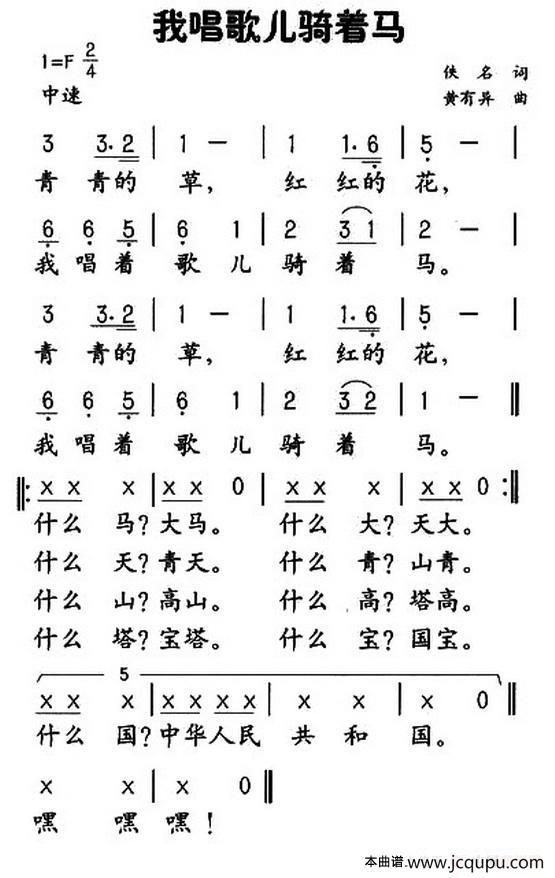 我唱歌儿骑着马
1=F 2/4
佚 名 词
中速
黄有异 曲
3 3·2 | 1 — | 1 1·6 | 5 — |
青 青的 草， 红 红的 花，
6 6 5 | 6 1 | 2 3 1 | 2 — |
我 唱 着 歌 儿 骑 着 马。
3 3·2 | 1 — | 1 1·6 | 5 — |
青 青的 草， 红 红的 花，
6 6 5 | 6 1 | 2 3 2 | 1 — ‖
我 唱 着 歌 儿 骑 着 马。
‖: X X X | X X 0 | X X X | X X 0 :‖
什么 马？大马。 什么 大？天大。
什么 天？青天。 什么 青？山青。
什么 山？高山。 什么 高？塔高。
什么 塔？宝塔。 什么 宝？国宝。
5
X X X | X X X X | X X | X 0 ‖
什么 国？中华人民 共 和 国。
X X | X 0 ‖
嘿 嘿 嘿！
本曲谱.www.jcqupu.com